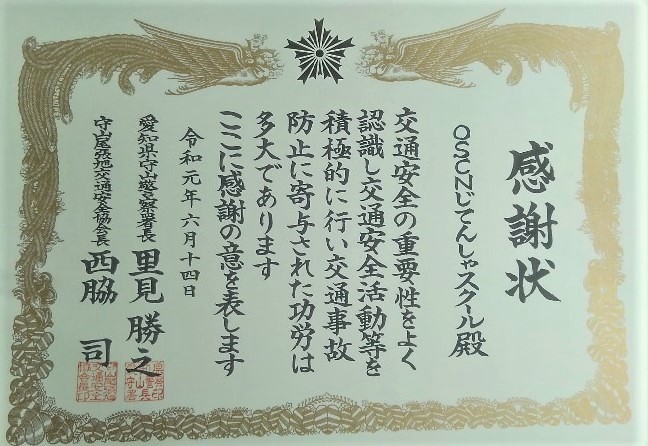 感謝状
OSCNじてんしゃスクール殿
交通安全の重要性をよく
認識し交通安全活動等を
積極的に行い交通事故
防止に寄与された功労は
多大であります
ここに感謝の意を表します
令和元年六月十四日
愛知県守山警察署長 里見勝之
守山尾張旭交通安全協会長 西脇 司